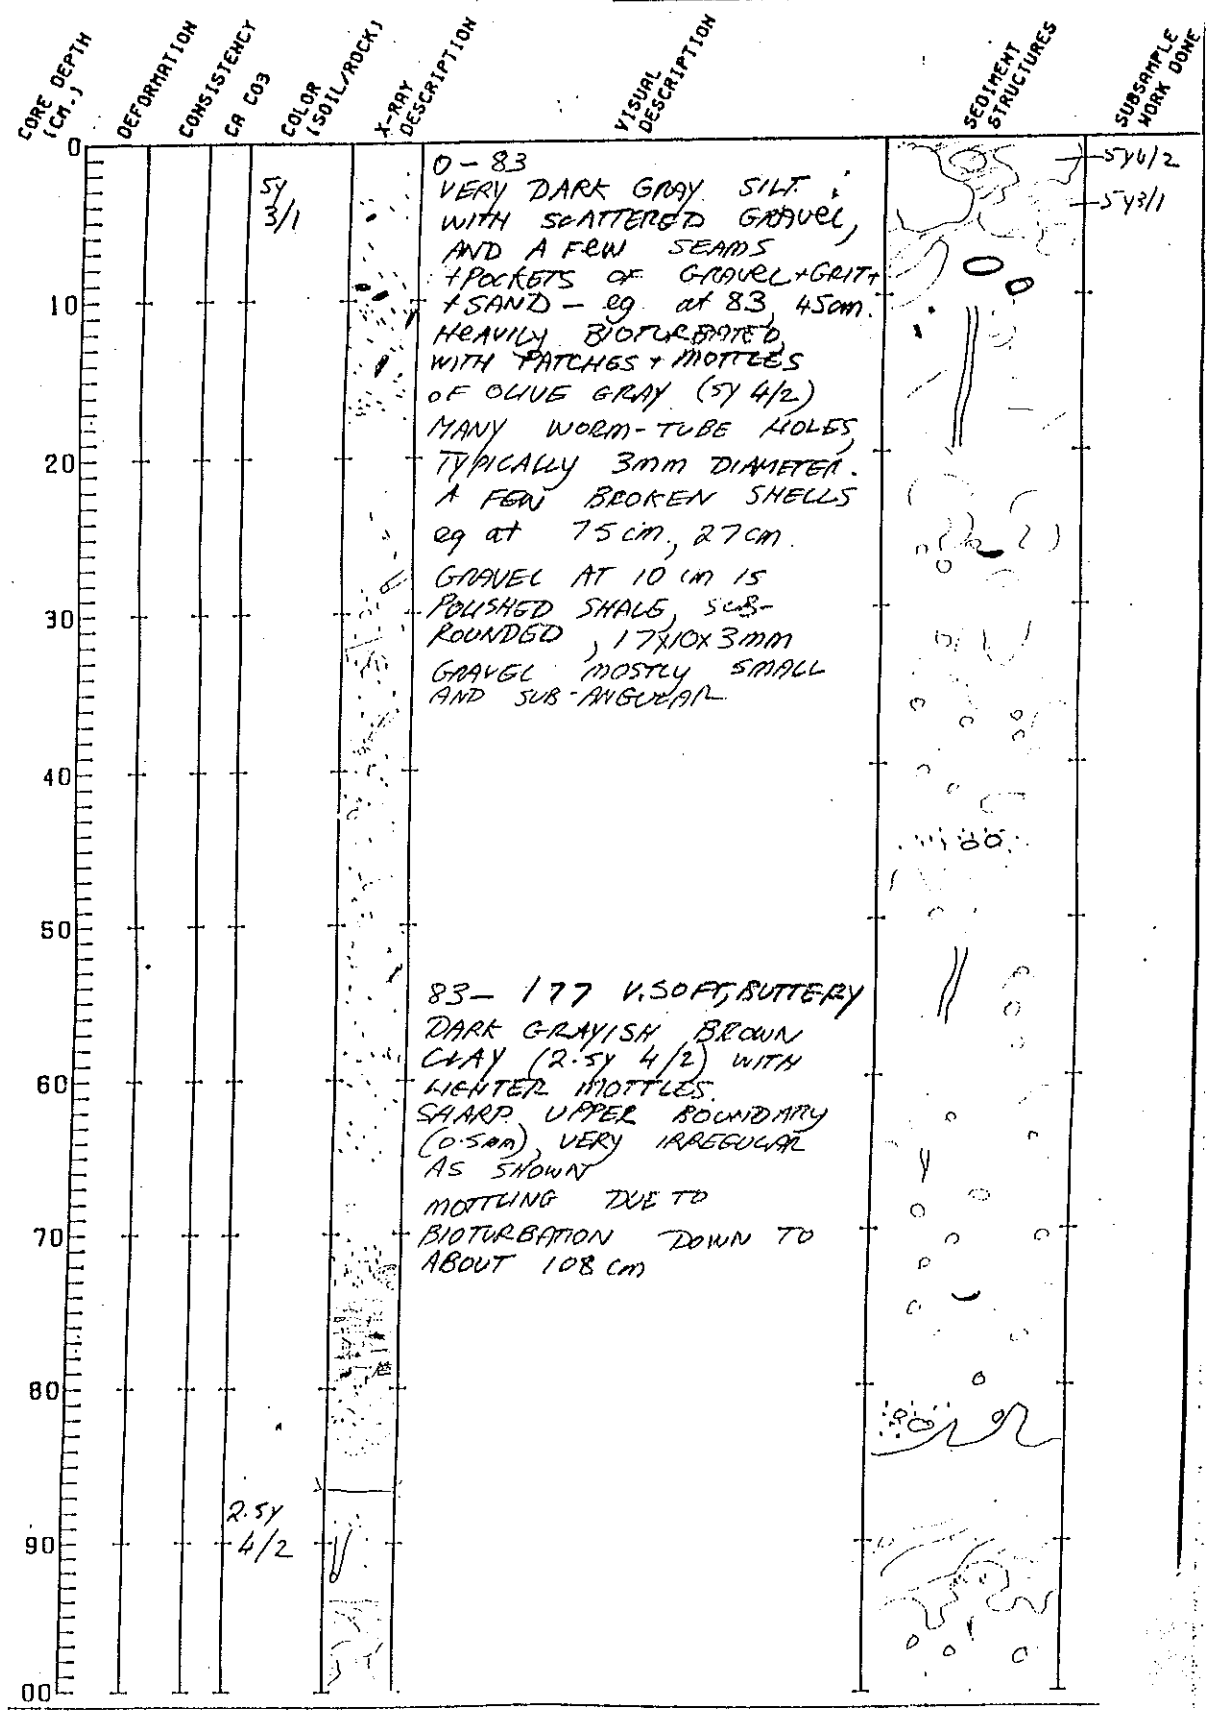 CORE DEPTH (CM.)
DEFORMATION
CONSISTENCY
CA CO3
COLOR (SOIL/ROCK)
X-RAY DESCRIPTION
VISUAL DESCRIPTION
SEDIMENT STRUCTURES
SUBSAMPLE WORK DONE
0
10
20
30
40
50
60
70
80
90
00
5Y
3/1
2.5Y
4/2
0-83
VERY DARK GRAY SILT
WITH SCATTERED GRAVEL,
AND A FEW SEAMS
+POCKETS OF GRAVEL+GRIT+
+SAND - eg. at 83, 45cm.
HEAVILY BIOTURBATED,
WITH PATCHES + MOTTLES
OF OLIVE GRAY (5Y 4/2)
MANY WORM-TUBE HOLES,
TYPICALLY 3mm DIAMETER.
A FEW BROKEN SHELLS
eg at 75 cm, 27cm.
GRAVEL AT 10 cm IS
POLISHED SHALE, SUB-
ROUNDED, 17x10x3mm
GRAVEL MOSTLY SMALL
AND SUB-ANGULAR
83-177 V.SOFT, BUTTERY
DARK GRAYISH BROWN
CLAY (2.5Y 4/2) WITH
LIGHTER MOTTLES.
SHARP UPPER BOUNDARY
(0.5mm), VERY IRREGULAR
AS SHOWN
MOTTLING DUE TO
BIOTURBATION DOWN TO
ABOUT 108 cm
5Y4/2
5Y3/1